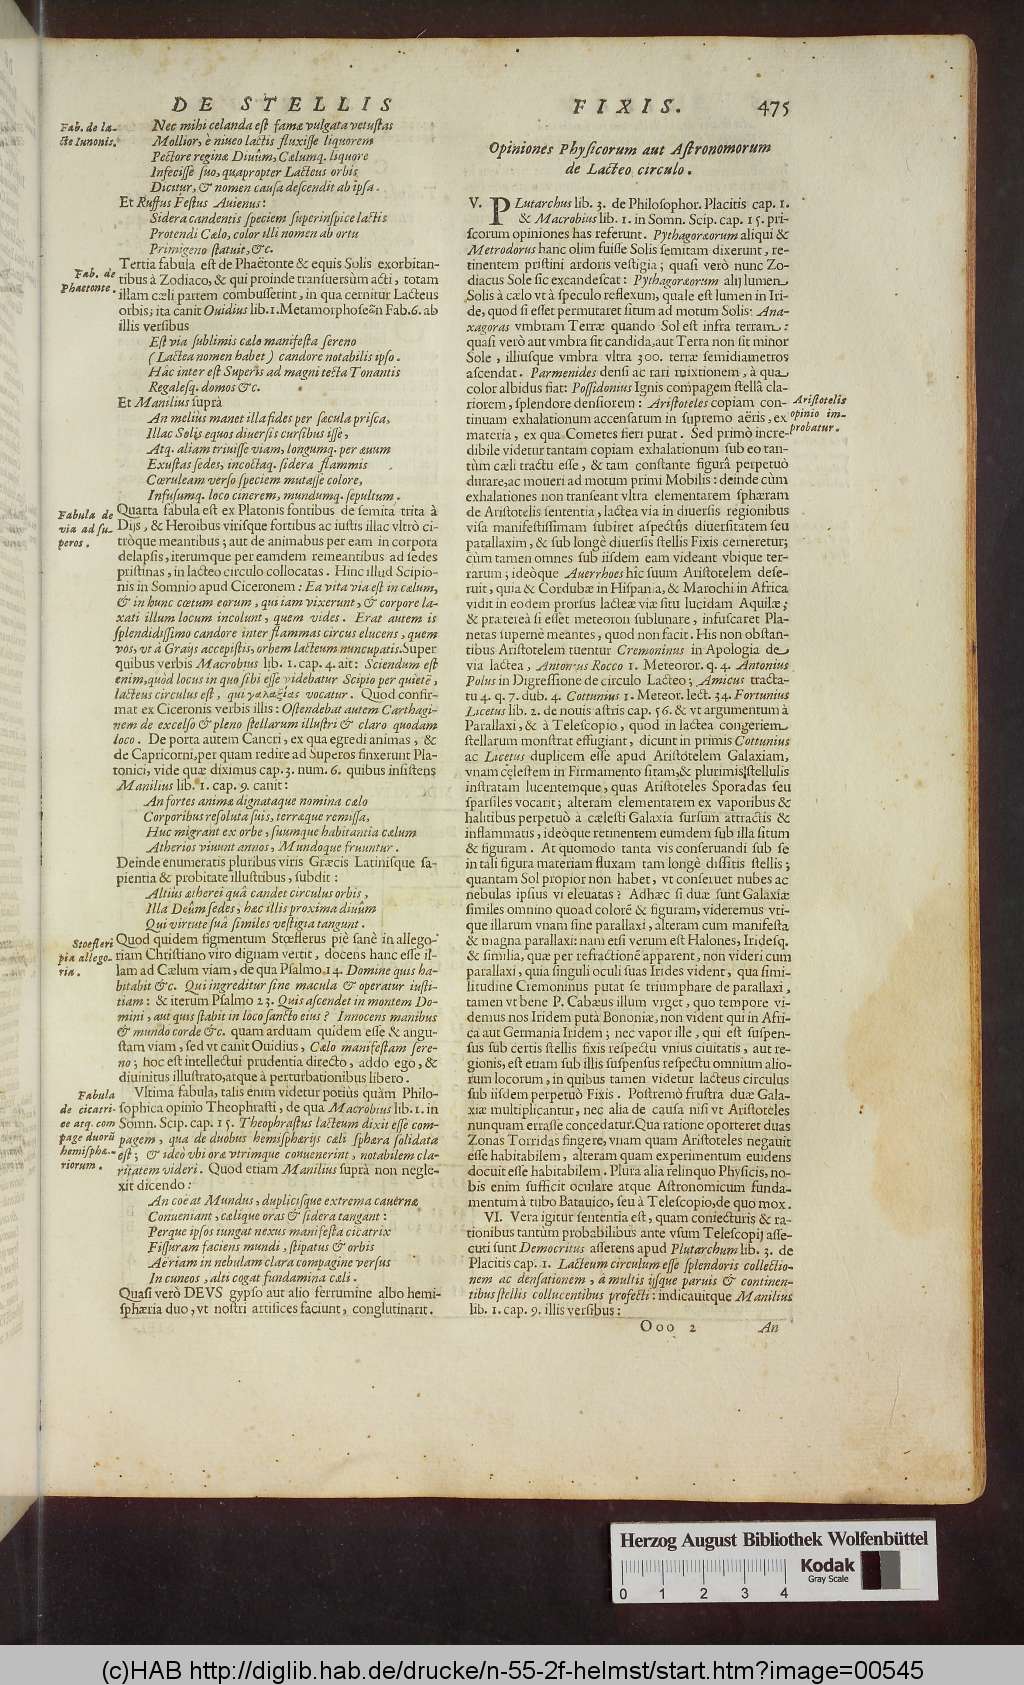 DE STELLIS
Fab. de la-
cte Iunonis.
Nec mihi celanda est famæ vulgata vetustas
Mollior, è niueo lactis fluxisse liquorem
Pectore reginæ Diuûm, Cælumq. liquore
Infecisse suo, quapropter Lacteus orbis
Dicitur, & nomen causa descendit ab ipsa.
Et Ruffus Festus Auienus:
Sidera candentis speciem superinspice lactis
Protendi Cælo, color illi nomen ab ortu
Primigeno statuit, &c.
Fab. de
Phaetonte.
Tertia fabula est de Phaëtonte & equis Solis exorbitan-
tibus à Zodiaco, & qui proinde transuersùm acti, totam
illam cæli partem combusserint, in qua cernitur Lacteus
orbis; ita canit Ouidius lib. 1. Metamorphoseωn Fab. 6. ab
illis versibus
Est via sublimis cælo manifesta sereno
(Lactea nomen habet) candore notabilis ipso.
Hàc inter est Superis ad magni tecta Tonantis
Regalesq. domos &c.
Et Manilius suprà
An meliùs manet illa fides per sæcula prisca,
Illac Solis equos diuersis cursibus isse,
Atq. aliam triuisse viam, longumq. per æuum
Exustas sedes, incoctaq. sidera flammis
Cœruleam verso speciem mutasse colore,
Infusumq. loco cinerem, mundumq. sepultum.
Fabula de
via ad su-
peros.
Quarta fabula est ex Platonis fontibus de semita trita à
Dijs, & Heroibus virisque fortibus ac iustis illac vltrò ci-
tròque meantibus; aut de animabus per eam in corpora
delapsis, iterumque per eamdem remeantibus ad sedes
pristinas, in lacteo circulo collocatas. Hinc illud Scipio-
nis in Somnio apud Ciceronem: Ea vita via est in cælum,
& in hunc cœtum eorum, qui iam vixerunt, & corpore la-
xati illum locum incolunt, quem vides. Erat autem is
splendidissimo candore inter flammas circus elucens, quem
vos, vt à Graijs accepistis, orbem lacteum nuncupatis. Super
quibus verbis Macrobius lib. 1. cap. 4. ait: Sciendum est
enim, quòd locus in quo sibi esse videbatur Scipio per quietē,
lacteus circulus est, qui γαλαξίας vocatur. Quod confir-
mat ex Ciceronis verbis illis: Ostendebat autem Carthagi-
nem de excelso & pleno stellarum illustri & claro quodam
loco. De porta autem Cancri, ex qua egredi animas, &
de Capricorni, per quam redire ad Superos finxerunt Pla-
tonici, vide quæ diximus cap. 3. num. 6. quibus insistens
Manilius lib. 1. cap. 9. canit:
An fortes animæ dignataque nomina cælo
Corporibus resoluta suis, terræque remissa,
Huc migrant ex orbe, suumque habitantia cælum
Ætherios viuunt annos, Mundoque fruuntur.
Deinde enumeratis pluribus viris Græcis Latinisque sa-
pientia & probitate illustribus, subdit:
Altiùs ætherei quà candet circulus orbis,
Illa Deûm sedes, hæc illis proxima diuûm
Qui virtute suâ similes vestigia tangunt.
Stoefleri
pia allego-
ria.
Quod quidem figmentum Stœflerus piè sanè in allego-
riam Christiano viro dignam vertit, docens hanc esse il-
lam ad Cælum viam, de qua Psalmo 14. Domine quis ha-
bitabit &c. Qui ingreditur sine macula & operatur iusti-
tiam: & iterum Psalmo 23. Quis ascendet in montem Do-
mini, aut quis stabit in loco sancto eius? Innocens manibus
& mundo corde &c. quam arduam quidem esse & angu-
stam viam, sed vt canit Ouidius, Cælo manifestam sere-
no; hoc est intellectui prudentia directo, addo ego, &
diuinitus illustrato, atque à perturbationibus libero.
Fabula
de cicatri-
ce atq. com
page duorū
hemisphæ-
riorum.
Vltima fabula, talis enim videtur potiùs quàm Philo-
sophica opinio Theophrasti, de qua Macrobius lib. 1. in
Somn. Scip. cap. 15. Theophrastus lacteum dixit esse com-
pagem, qua de duobus hemisphærijs cæli sphæra solidata
est; & ideò vbi oræ vtrimque conuenerint, notabilem cla-
ritatem videri. Quod etiam Manilius suprà non negle-
xit dicendo:
An coëat Mundus, duplicisque extrema cauernæ
Conueniant, cælique oras & sidera tangant:
Perque ipsos iungat nexus manifesta cicatrix
Fissuram faciens mundi, stipatus & orbis
Aëriam in nebulam clara compagine versus
In cuneos, alti cogat fundamina cæli.
Quasi verò DEVS gypso aut alio ferrumine albo hemi-
sphæria duo, vt nostri artifices faciunt, conglutinarit.
FIXIS. 475
Opiniones Physicorum aut Astronomorum
de Lacteo circulo.
V. PLutarchus lib. 3. de Philosophor. Placitis cap. 1.
& Macrobius lib. 1. in Somn. Scip. cap. 15. pri-
scorum opiniones has referunt. Pythagoræorum aliqui &
Metrodorus hanc olim fuisse Solis semitam dixerunt, re-
tinentem pristini ardoris vestigia; quasi verò nunc Zo-
diacus Sole sic excandescat: Pythagoræorum alij lumen
Solis à cælo vt à speculo reflexum, quale est lumen in Iri-
de, quod si esset permutaret situm ad motum Solis: Ana-
xagoras vmbram Terræ quando Sol est infra terram:
quasi verò aut vmbra sit candida, aut Terra non sit minor
Sole, illiusque vmbra vltra 300. terræ semidiametros
ascendat. Parmenides densi ac rari mixtionem, à qua
color albidus fiat: Possidonius Ignis compagem stellâ cla-
riorem, splendore densiorem: Aristoteles copiam con-
tinuam exhalationum accensarum in supremo aëris, ex
materia, ex qua Cometes fieri putat. Sed primò incre-
dibile videtur tantam copiam exhalationum sub eo tan-
tùm cæli tractu esse, & tam constante figurâ perpetuò
durare, ac moueri ad motum primi Mobilis: deinde cùm
exhalationes non transeant vltra elementarem sphæram
de Aristotelis sententia, lactea via in diuersis regionibus
visa manifestissimam subiret aspectûs diuersitatem seu
parallaxim, & sub longè diuersis stellis Fixis cerneretur;
cùm tamen omnes sub iisdem eam videant vbique ter-
rarum; ideòque Auerrhoes hîc suum Aristotelem dese-
ruit, quia & Cordubæ in Hispania, & Marochi in Africa
vidit in eodem prorsus lacteæ viæ situ lucidam Aquilæ;
& prætereà si esset meteoron sublunare, infuscaret Pla-
netas supernè meantes, quod non facit. His non obstan-
tibus Aristotelem tuentur Cremoninus in Apologia de
via lactea, Antonius Rocco 1. Meteoror. q. 4. Antonius
Polus in Digressione de circulo Lacteo; Amicus tracta-
tu 4. q. 7. dub. 4. Cottunius 1. Meteor. lect. 34. Fortunius
Licetus lib. 2. de nouis astris cap. 56. & vt argumentum à
Parallaxi, & à Telescopio, quod in lactea congeriem
stellarum monstrat effugiant, dicunt in primis Cottunius
ac Licetus duplicem esse apud Aristotelem Galaxiam,
vnam cęlestem in Firmamento sitam, & plurimis stellulis
instratam lucentemque, quas Aristoteles Sporadas seu
sparsiles vocarit; alteram elementarem ex vaporibus &
halitibus perpetuò à cælesti Galaxia sursum attractis &
inflammatis, ideòque retinentem eumdem sub illa situm
& figuram. At quomodo tanta vis conseruandi sub se
in tali figura materiam fluxam tam longè dissitis stellis;
quantam Sol propior non habet, vt conseruet nubes ac
nebulas ipsius vi eleuatas? Adhæc si duæ sunt Galaxiæ
similes omnino quoad colorē & figuram, videremus vti-
que illarum vnam sine parallaxi, alteram cum manifesta
& magna parallaxi: nam etsi verum est Halones, Iridesq.
& similia, quæ per refractionē apparent, non videri cum
parallaxi, quia singuli oculi suas Irides vident, qua simi-
litudine Cremoninus putat se triumphare de parallaxi,
tamen vt bene P. Cabæus illum vrget, quo tempore vi-
demus nos Iridem putà Bononiæ, non vident qui in Afri-
ca aut Germania Iridem; nec vapor ille, qui est suspen-
sus sub certis stellis fixis respectu vnius ciuitatis, aut re-
gionis, est etiam sub illis suspensus respectu omnium alio-
rum locorum, in quibus tamen videtur lacteus circulus
sub iisdem perpetuò Fixis. Postremò frustra duæ Gala-
xiæ multiplicantur, nec alia de causa nisi vt Aristoteles
nunquam errasse concedatur. Qua ratione oporteret duas
Zonas Torridas fingere, vnam quam Aristoteles negauit
esse habitabilem, alteram quam experimentum euidens
docuit esse habitabilem. Plura alia relinquo Physicis, no-
bis enim sufficit oculare atque Astronomicum funda-
mentum à tubo Batauico, seu à Telescopio, de quo mox.
Aristotelis
opinio im-
probatur.
VI. Vera igitur sententia est, quam coniecturis & ra-
tionibus tantùm probabilibus ante vsum Telescopij asse-
cuti sunt Democritus asserens apud Plutarchum lib. 3. de
Placitis cap. 1. Lacteum circulum esse splendoris collectio-
nem ac densationem, à multis ijsque paruis & continen-
tibus stellis collucentibus profecti: indicauitque Manilius
lib. 1. cap. 9. illis versibus:
Ooo 2 An
Herzog August Bibliothek Wolfenbüttel
0 1 2 3 4
Kodak
Gray Scale
(c)HAB http://diglib.hab.de/drucke/n-55-2f-helmst/start.htm?image=00545